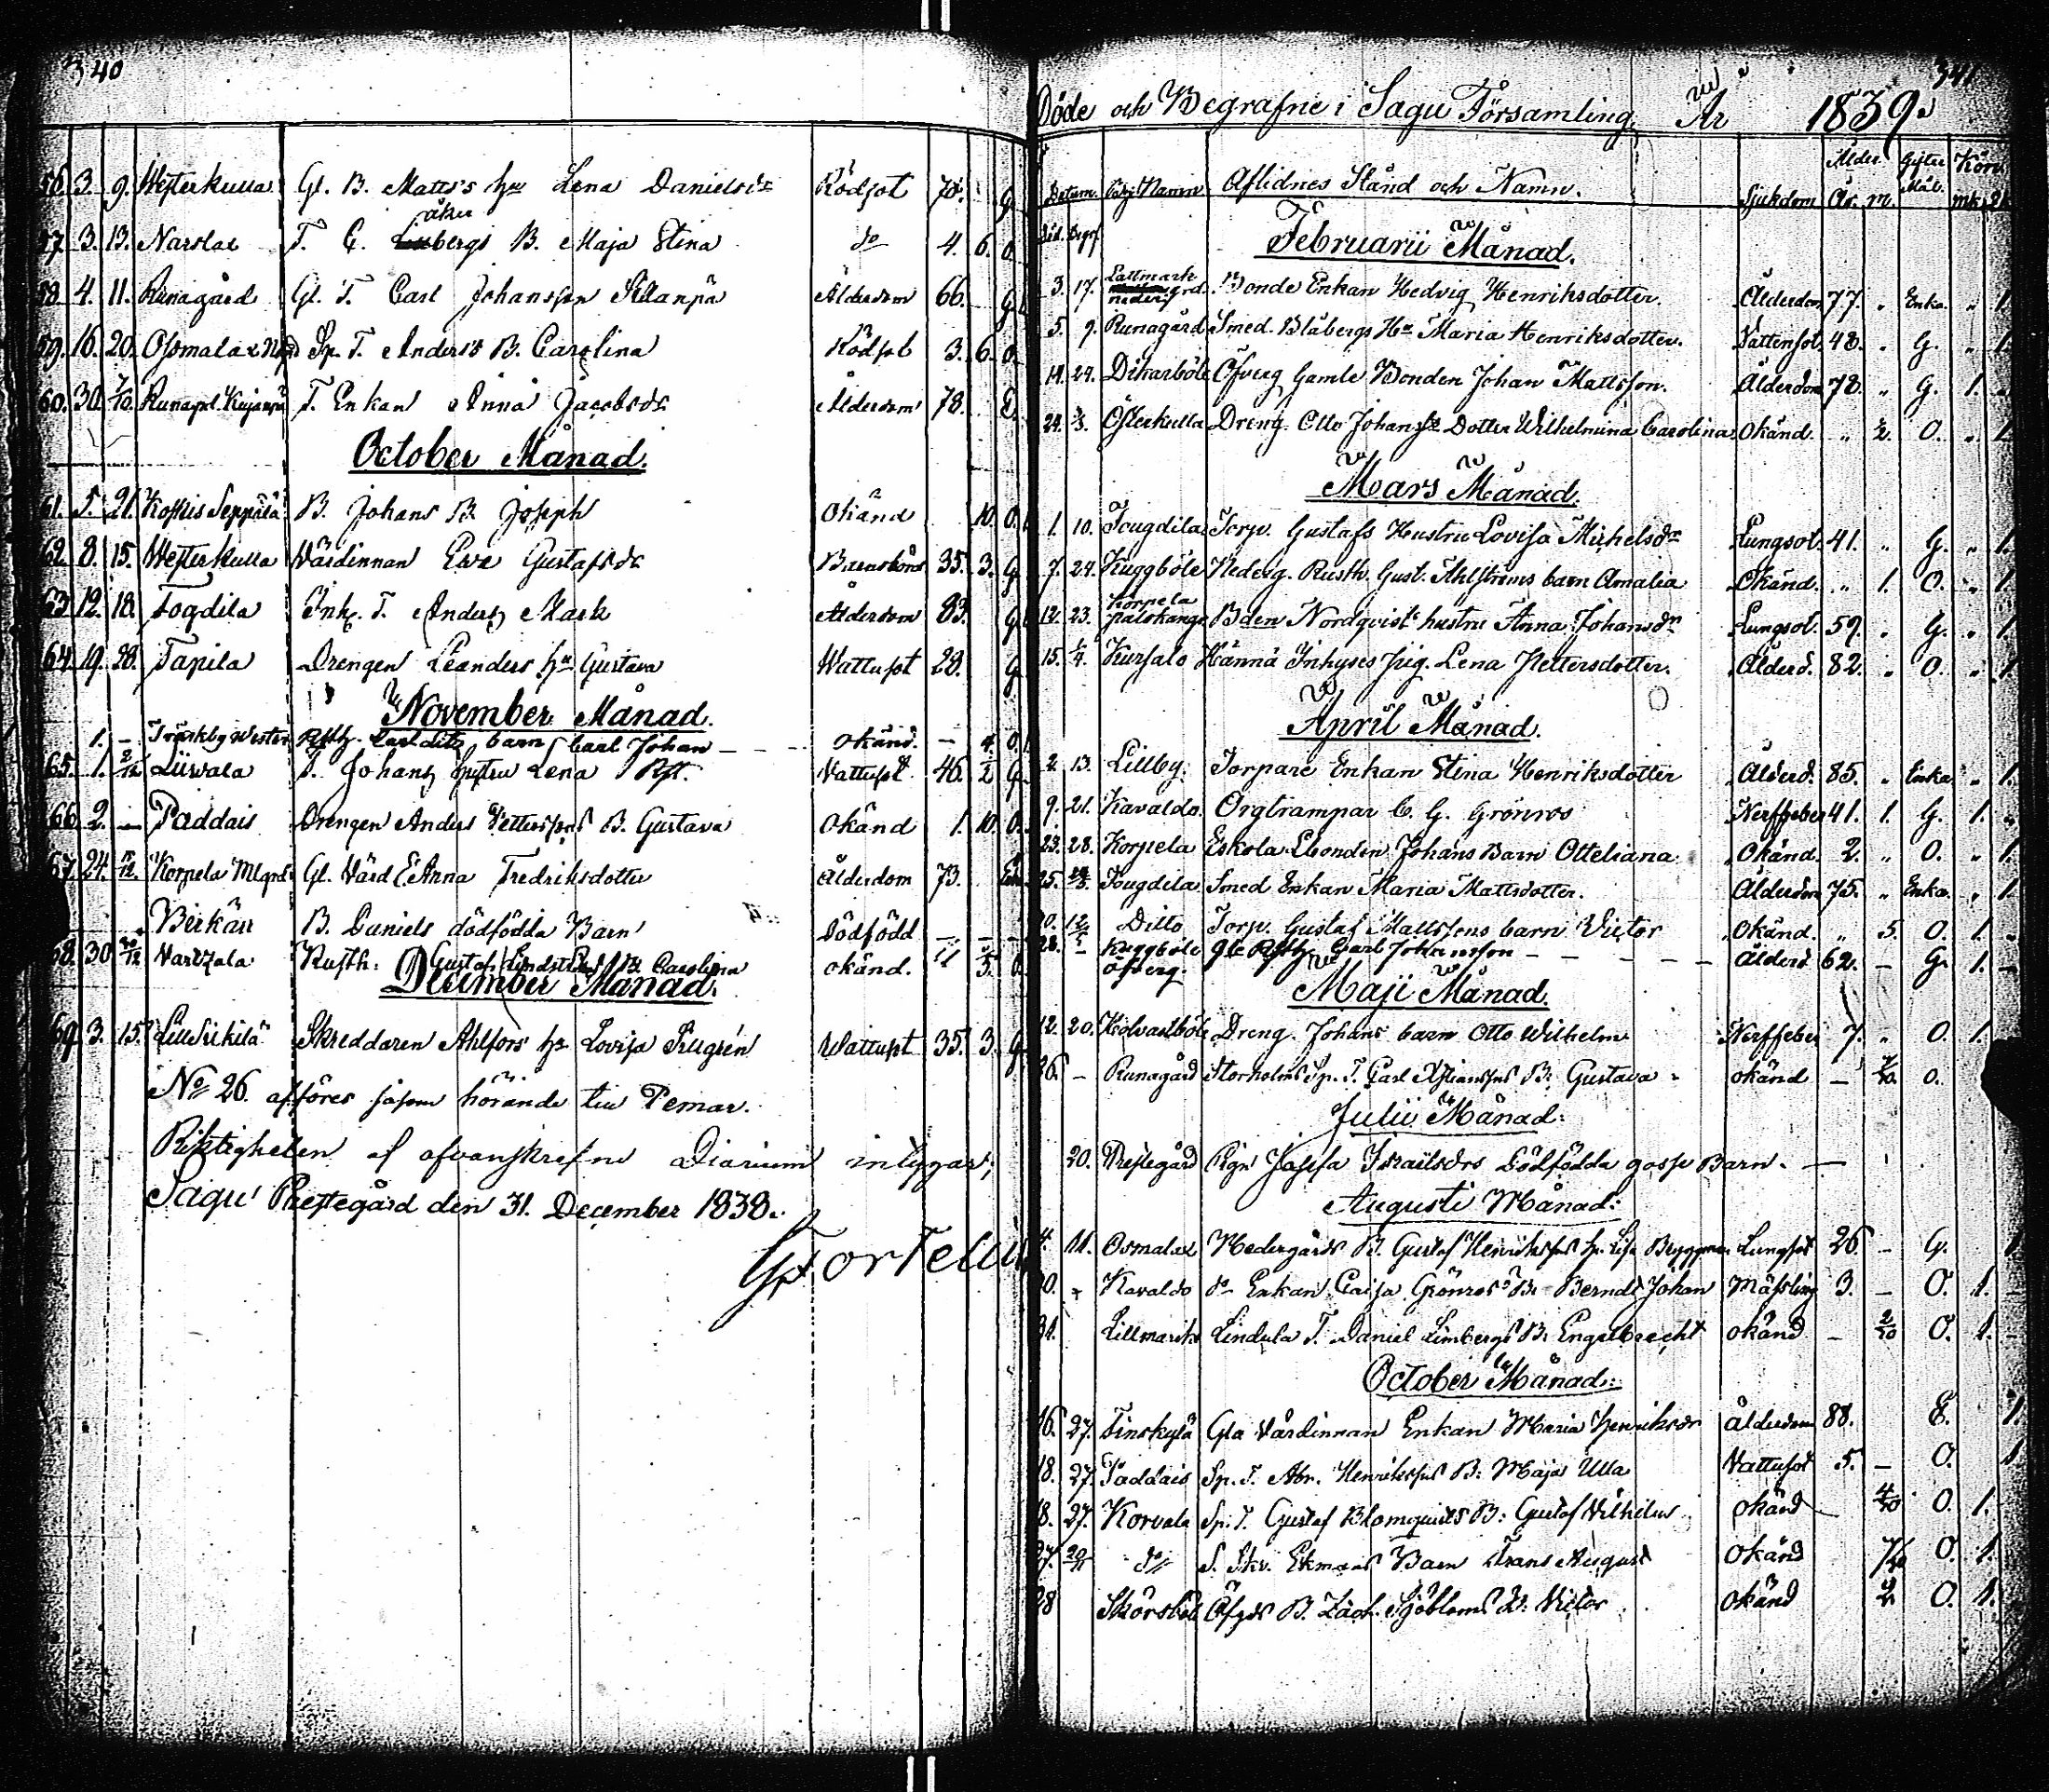 340
56. 3. 9. Westerkulla Gl. B. Matts's hu Lena Danielsdr Rödsot 70. G
57. 3. 13. Narslax T. C. åkerbergs B. Maja Stina do 4. 6. O.
58. 4. 11. Runagård Gl. T. Carl Johansson Ålderdom 66. G
59. 16. 20. Osmalax Sp. T. Anders's B. Carolina Rödsot 3. 6. O.
60. 30. 7/10. T. Enkan Anna Jacobsdr Ålderdom 78. E.
October Månad.
61. 5. 21. Koskis Seppälä B. Johans B. Joseph Okänd 10. O.
62. 8. 15. Westerkulla Värdinnan Eva Gustafsdr Barnsbörd 35. 3. G
63. 12. 18. Togdila Inh. T. Anders Mark Ålderdom 83. G
64. 19. 28. Tapila Drengen Leanders hu Gustava Wattusot 28. G
November Månad.
1. – Träskby Wester Rsth. barn Carl Johan – – – okänd. – 4. O.
65. 1. 2/12 Liiwala T. Johans hustru Lena Vattusot 46. 1/2 G
66. 2. – Paddais Drengen Anders Pettersson's B. Gustava Okänd 1. 10. O.
67. 24. Korpela Mlgrd Gl. Värd E. Anna Fredriksdotter Ålderdom 73.
Birkär B. Daniels dödfödda Barn Dödfödd – –
68. 30 Vartzala Rusth: Gustaf B. Carolina okänd.
December Månad.
69. 3. 15. Skreddaren Ahlfors hu Lovisa Wattusot 35. 3. G
No 26. afföres såsom hörande till Pemar.
Riktigheten af ofvanskrefne Diarium intygar,
Sagu Prestegård den 31. December 1838.
341
Döde och Begrafne i Sagu Församling, År 1839.
Ålder. Gifter Mål.
Datum. Byns Namn Aflidnes Stånd och Namn. Sjukdom År m.
Död. Begrf. Februarii Månad.
3. 17. Lattmark Bonde Enkan Hedvig Henriksdotter. Ålderdom 77. " Enka. " 1.
5. 9. Runagård Smed. Blåbergs Hu Maria Henriksdotter. Vattensot. 48. " G. " 1.
14. 24. Dikarböle Öfverg Gamle Bonden Johan Mattsson. Ålderdom 78. " G. 1. "
24. 3/3. Österkulla Dreng. Otto Johanss Dotter Wilhelmina Carolina Okänd. " O. " 1.
Mars Månad.
1. 10. Tougdila Torp. Gustafs Hustru Lovisa Michelsdr Lungsot. 41. " G. " 1.
7. 24. Kuggböle Nederg. Rusth. Gust. Ahlströms barn Amalia Okänd. " 1. O. " 1.
12. 23. Korpela Bden Nordqvists hustru Anna Johansdr Lungsot. 59. " G. " 1.
15. 1/4. Kursalo Hännä Inhyses pig. Lena Pettersdotter. Ålderd. 82. " O. " 1.
April Månad.
2 13. Lillby. Torpare Enkan Stina Henriksdotter Ålderd. 85. " Enka. " 1.
9. 21. Kavaldo. Orgtrampar C. G. Grönros Nerffeber 41. 1. G. 1. "
23. 28. Korpela Eskola Lbonden Johans Barn Otteliana Okänd. 2. " O. " 1.
25. Tougdila Smed Enkan Maria Mattsdotter. Ålderdom 75. " Enka. " 1.
Ditto Torp. Gustaf Mattssons barn Victor Okänd. " 5. O. 1. "
28. – Kuggböle öfverg. Gle Rsth Carl Johansson – – – – – Ålderd 62. – G 1. –
Maji Månad.
12. 20. Kolvastböle Dreng. Johans barn Otto Wilhelm Nerffeber 7. " O. 1.
26. – Runagård Storholms Sp. T. Carl B. Gustava okänd – O.
Julii Månad:
20. Prestegård Pign Israilsdrs Dödfödda gosse Barn. –
Augusti Månad:
4. 11. Osmalax Nedergårds B. Gustaf Henrikssons hu. Lisa Lungsot 26. – G. 1
20. Kavaldo do Enkan Caisa Grönros's B. Berndt Johan Mässling 3. – O. 1.
31. Lillmark Lindula T. Daniel Limbergs B. Engelbrecht okänd – 2/30 O. 1. –
October Månad:
16. 27. Finskylä Gla Värdinnan Enkan Maria Henriksdr ålderdom 88. E. 1.
18. 27. Paddais Sp. T. Abr. Henrikssons B: Maja Ulla Vattusot 5. – O. 1.
18. 27. Korvala Sp. T. Gustaf Blomquists B: Gustaf Vilhelm okänd 4/30 O. 1.
27. do S. Skr. Ekmans Barn Frans August Okänd O. 1.
28 Skörsböle Öfgds B. Zach. Sjöbloms B. Victor okänd O. 1.